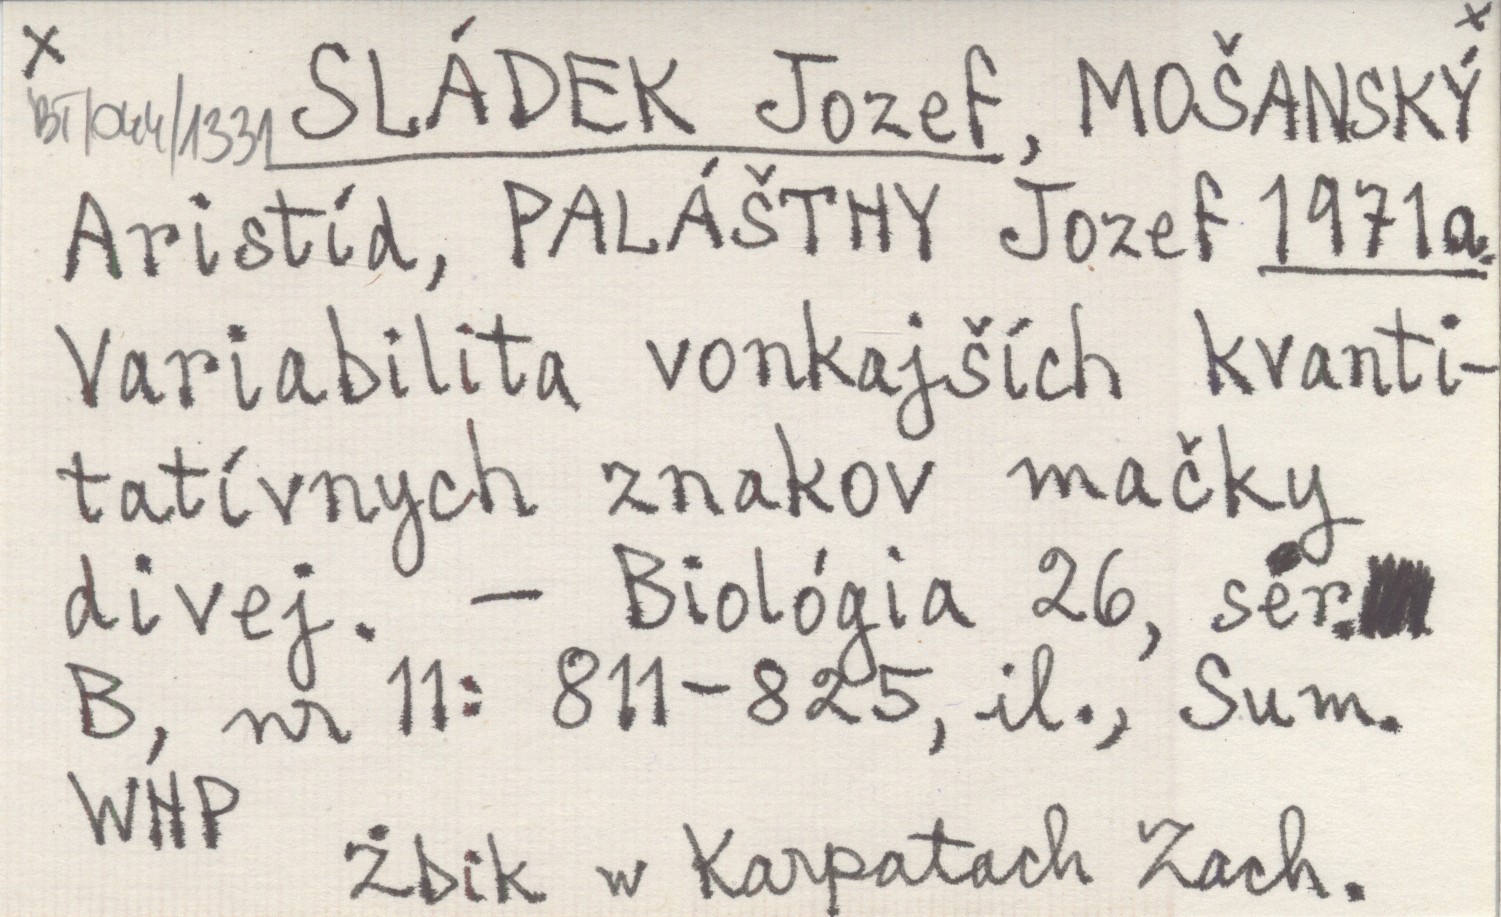 x x
BT/044/1331 SLÁDEK Jozef, MOŠANSKÝ
Aristíd, PALÁŠTHY Jozef 1971a.
Variabilita vonkajších kvanti-
tatívnych znakov mačky
divej. — Biológia 26, sér.
B, nr 11: 811-825, il., Sum.
WHP
Żbik w Karpatach Zach.